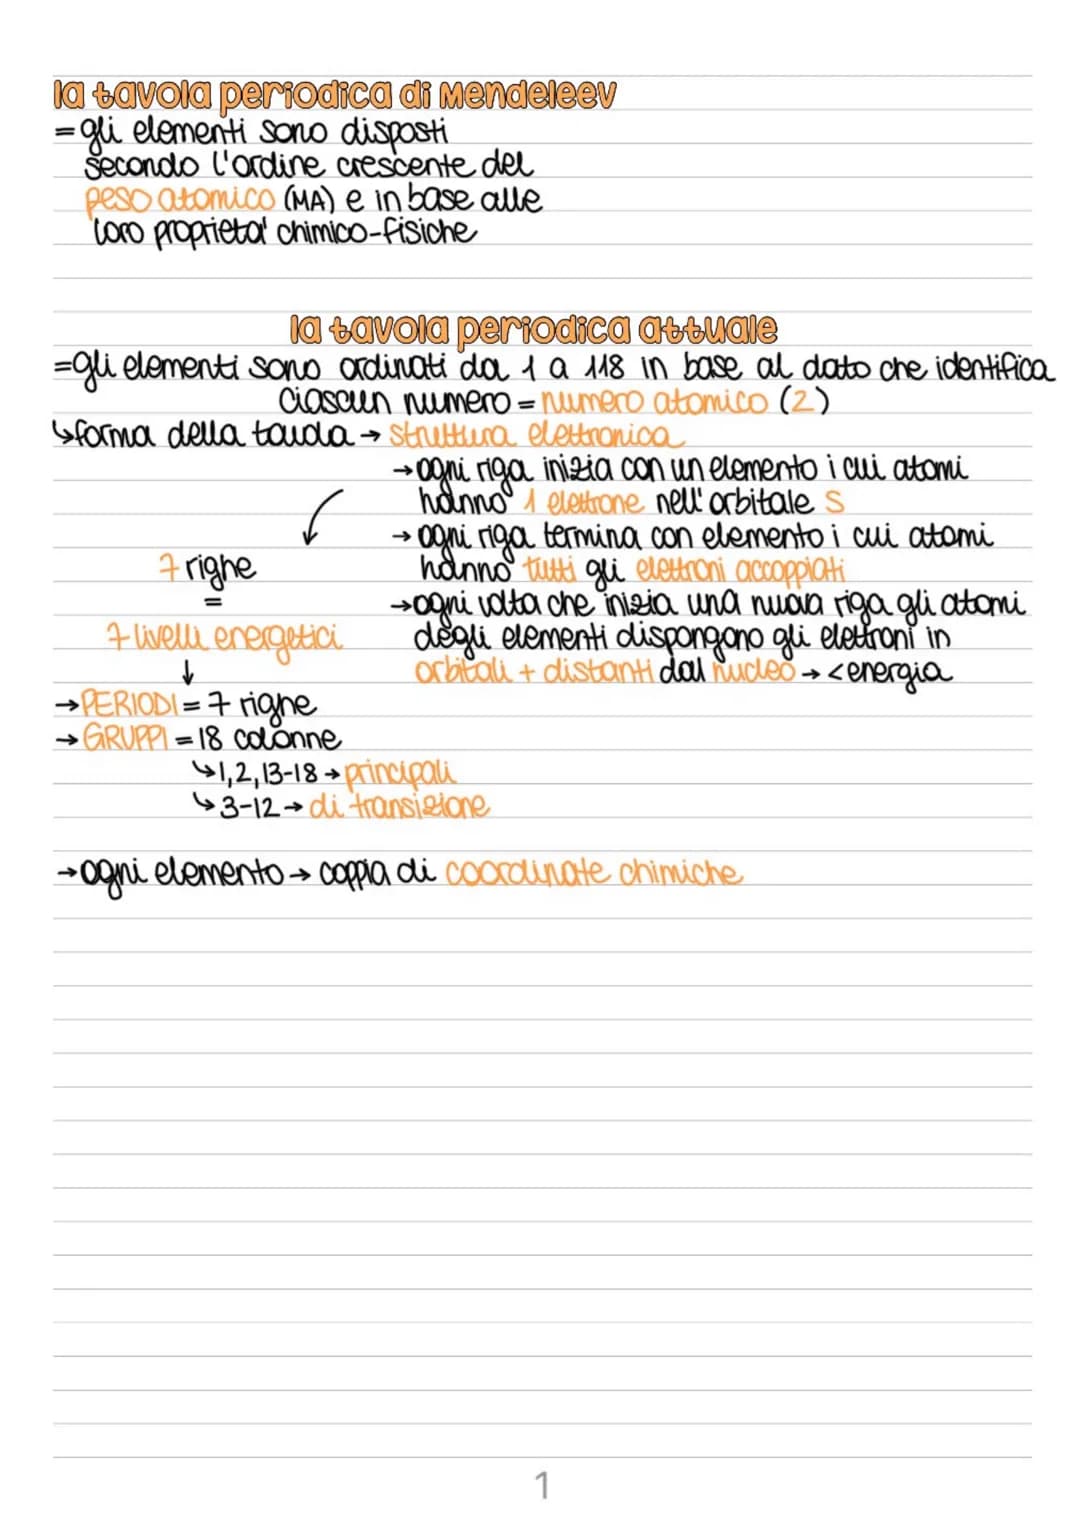 la tavola periodica di Mendeleev
=gli elementi sono disposti
secondo l'ordine crescente del
peso atomico (MA) e in base alle
loro proprieta' chimico-fisiche
la tavola periodica attuale
=gli elementi sono ordinati da 1 a 118 in base al dato che identifica
ciascun numero = numero atomico (Z)
↳forma della tavola → struttura elettronica
→ogni riga inizia con un elemento i cui atomi
hanno 1 elettrone nell'orbitale S
→ogni riga termina con elemento i cui atomi
hanno tutti gli elettroni accoppiati
7 righe
=
7 livelli energetici
↓
→ogni volta che inizia una nuova riga gli atomi
degli elementi dispongono gli elettroni in
orbitali + distanti dal nucleo → <energia
→PERIODI = 7 righe
→GRUPPI = 18 colonne
↳1,2,13-18→principali
↳3-12→di transizione
→ogni elemento→ coppia di coordinate chimiche
1